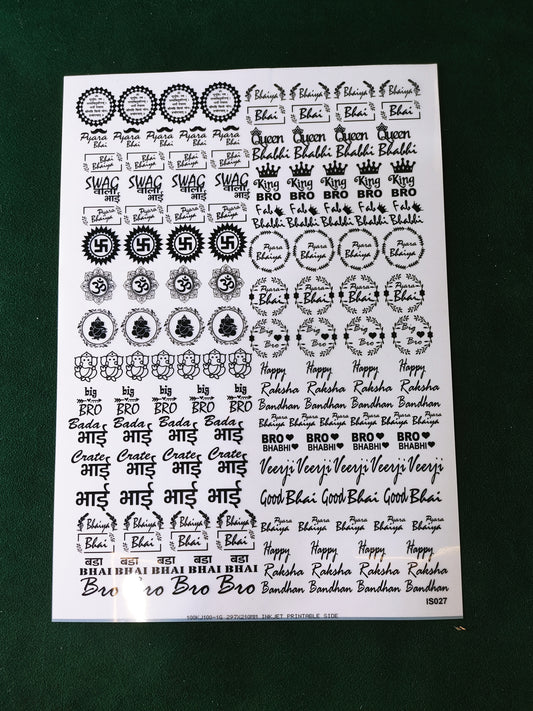 Pyara Bhai Pyara Bhai Pyara Bhai Pyara Bhai
Bhai Bhai Bhai Bhai
Bhaiya Bhaiya Bhaiya Bhaiya
SWAG SWAG SWAG SWAG
वाला वाला वाला वाला
भाई भाई भाई भाई
Pyara Pyara Pyara Pyara
Bhaiya Bhaiya Bhaiya Bhaiya
ॐ ॐ ॐ ॐ
big big big big
BRO BRO BRO BRO
Bada Bada Bada Bada
भाई भाई भाई भाई
Crate Crate Crate Crate
भाई भाई भाई भाई
भाई भाई भाई भाई
Bhaiya Bhaiya Bhaiya Bhaiya
Bhai Bhai Bhai Bhai
बडा बडा बडा बडा बडा
BHAI BHAI BHAI BHAI BHAI
Bro Bro Bro Bro
Bhaiya Bhaiya Bhaiya Bhaiya
Bhai Bhai Bhai Bhai
Queen Queen Queen Queen
Bhabhi Bhabhi Bhabhi Bhabhi
King King King King King
BRO BRO BRO BRO BRO
Fab Fab Fab Fab Fab
Bhabhi Bhabhi Bhabhi Bhabhi Bhabhi
Pyara Pyara Pyara Pyara
Bhaiya Bhaiya Bhaiya Bhaiya
Pyara Pyara Pyara Pyara
Bhai Bhai Bhai Bhai
Big Big Big Big
Bro Bro Bro Bro
Happy Happy Happy Happy
Raksha Raksha Raksha Raksha
Bandhan Bandhan Bandhan Bandhan
Pyara Pyara Pyara Pyara Pyara
Bhaiya Bhaiya Bhaiya Bhaiya Bhaiya
BRO BRO BRO BRO
BHABHI BHABHI BHABHI BHABHI
Veerji Veerji Veerji Veerji Veerji
Good Bhai Good Bhai Good Bhai
Pyara Pyara Pyara Pyara Pyara
Bhaiya Bhaiya Bhaiya Bhaiya Bhaiya
Happy Happy Happy Happy
Raksha Raksha Raksha Raksha
Bandhan Bandhan Bandhan Bandhan
IS027
100KJ100-1G 297X210MM INKJET PRINTABLE SIDE